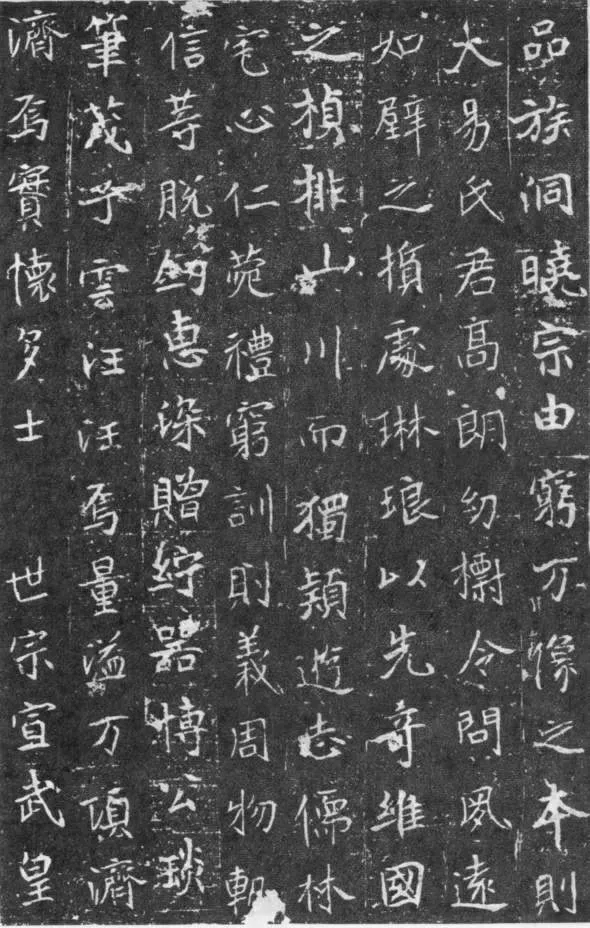 品族洞曉宗由窮万像之本則
大易氏君高朗幼擠令問夙遠
如璧之損處琳琅以先奇維國
之楨排山川而獨穎遊志儒林
宅心仁菀禮窮訓則義周物軌
信等脫劒惠深贈紵器博公琰
筆茂子雲汪汪焉量溢万頃濟
濟焉實懷多士 世宗宣武皇